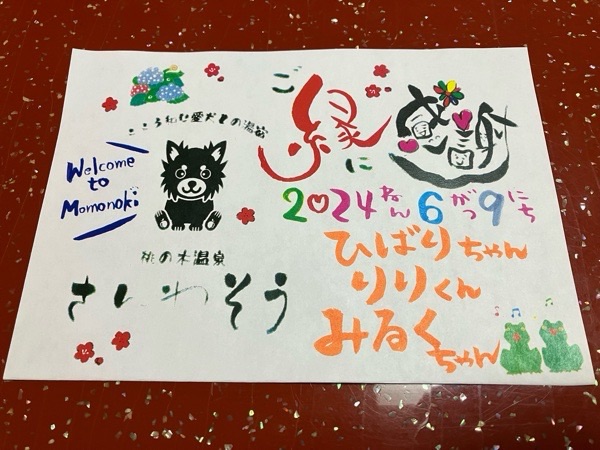 ご縁に感謝
こころ和む愛犬との湯宿
Welcome
to
Momonoki
2024ねん6がつ9にち
ひばりちゃん
りりくん
みるくちゃん
桃の木温泉
さんわそう